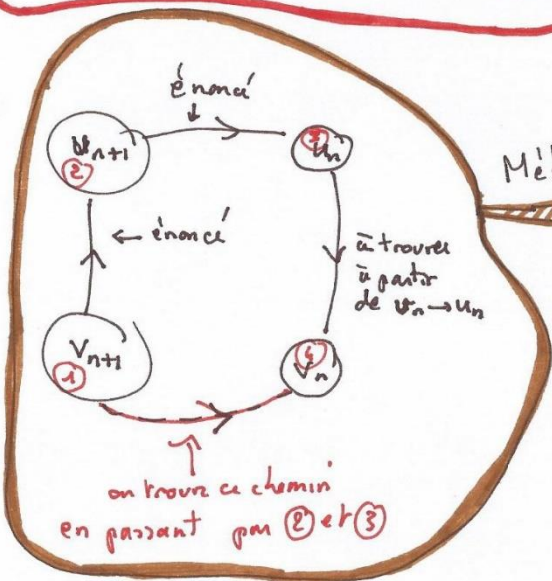 énoncé
un+1
②
③
un
Mé
← énoncé
à trouver
à partir
de vn → un
Vn+1
①
④
Vn
on trouve ce chemin
en passant par ② et ③